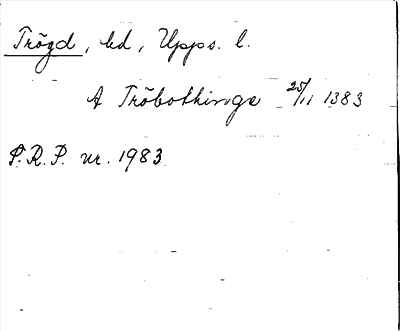 Trögd, hd, Upps. l.
A Tröbothinge 25/11 1383
P.R.P. nr. 1983